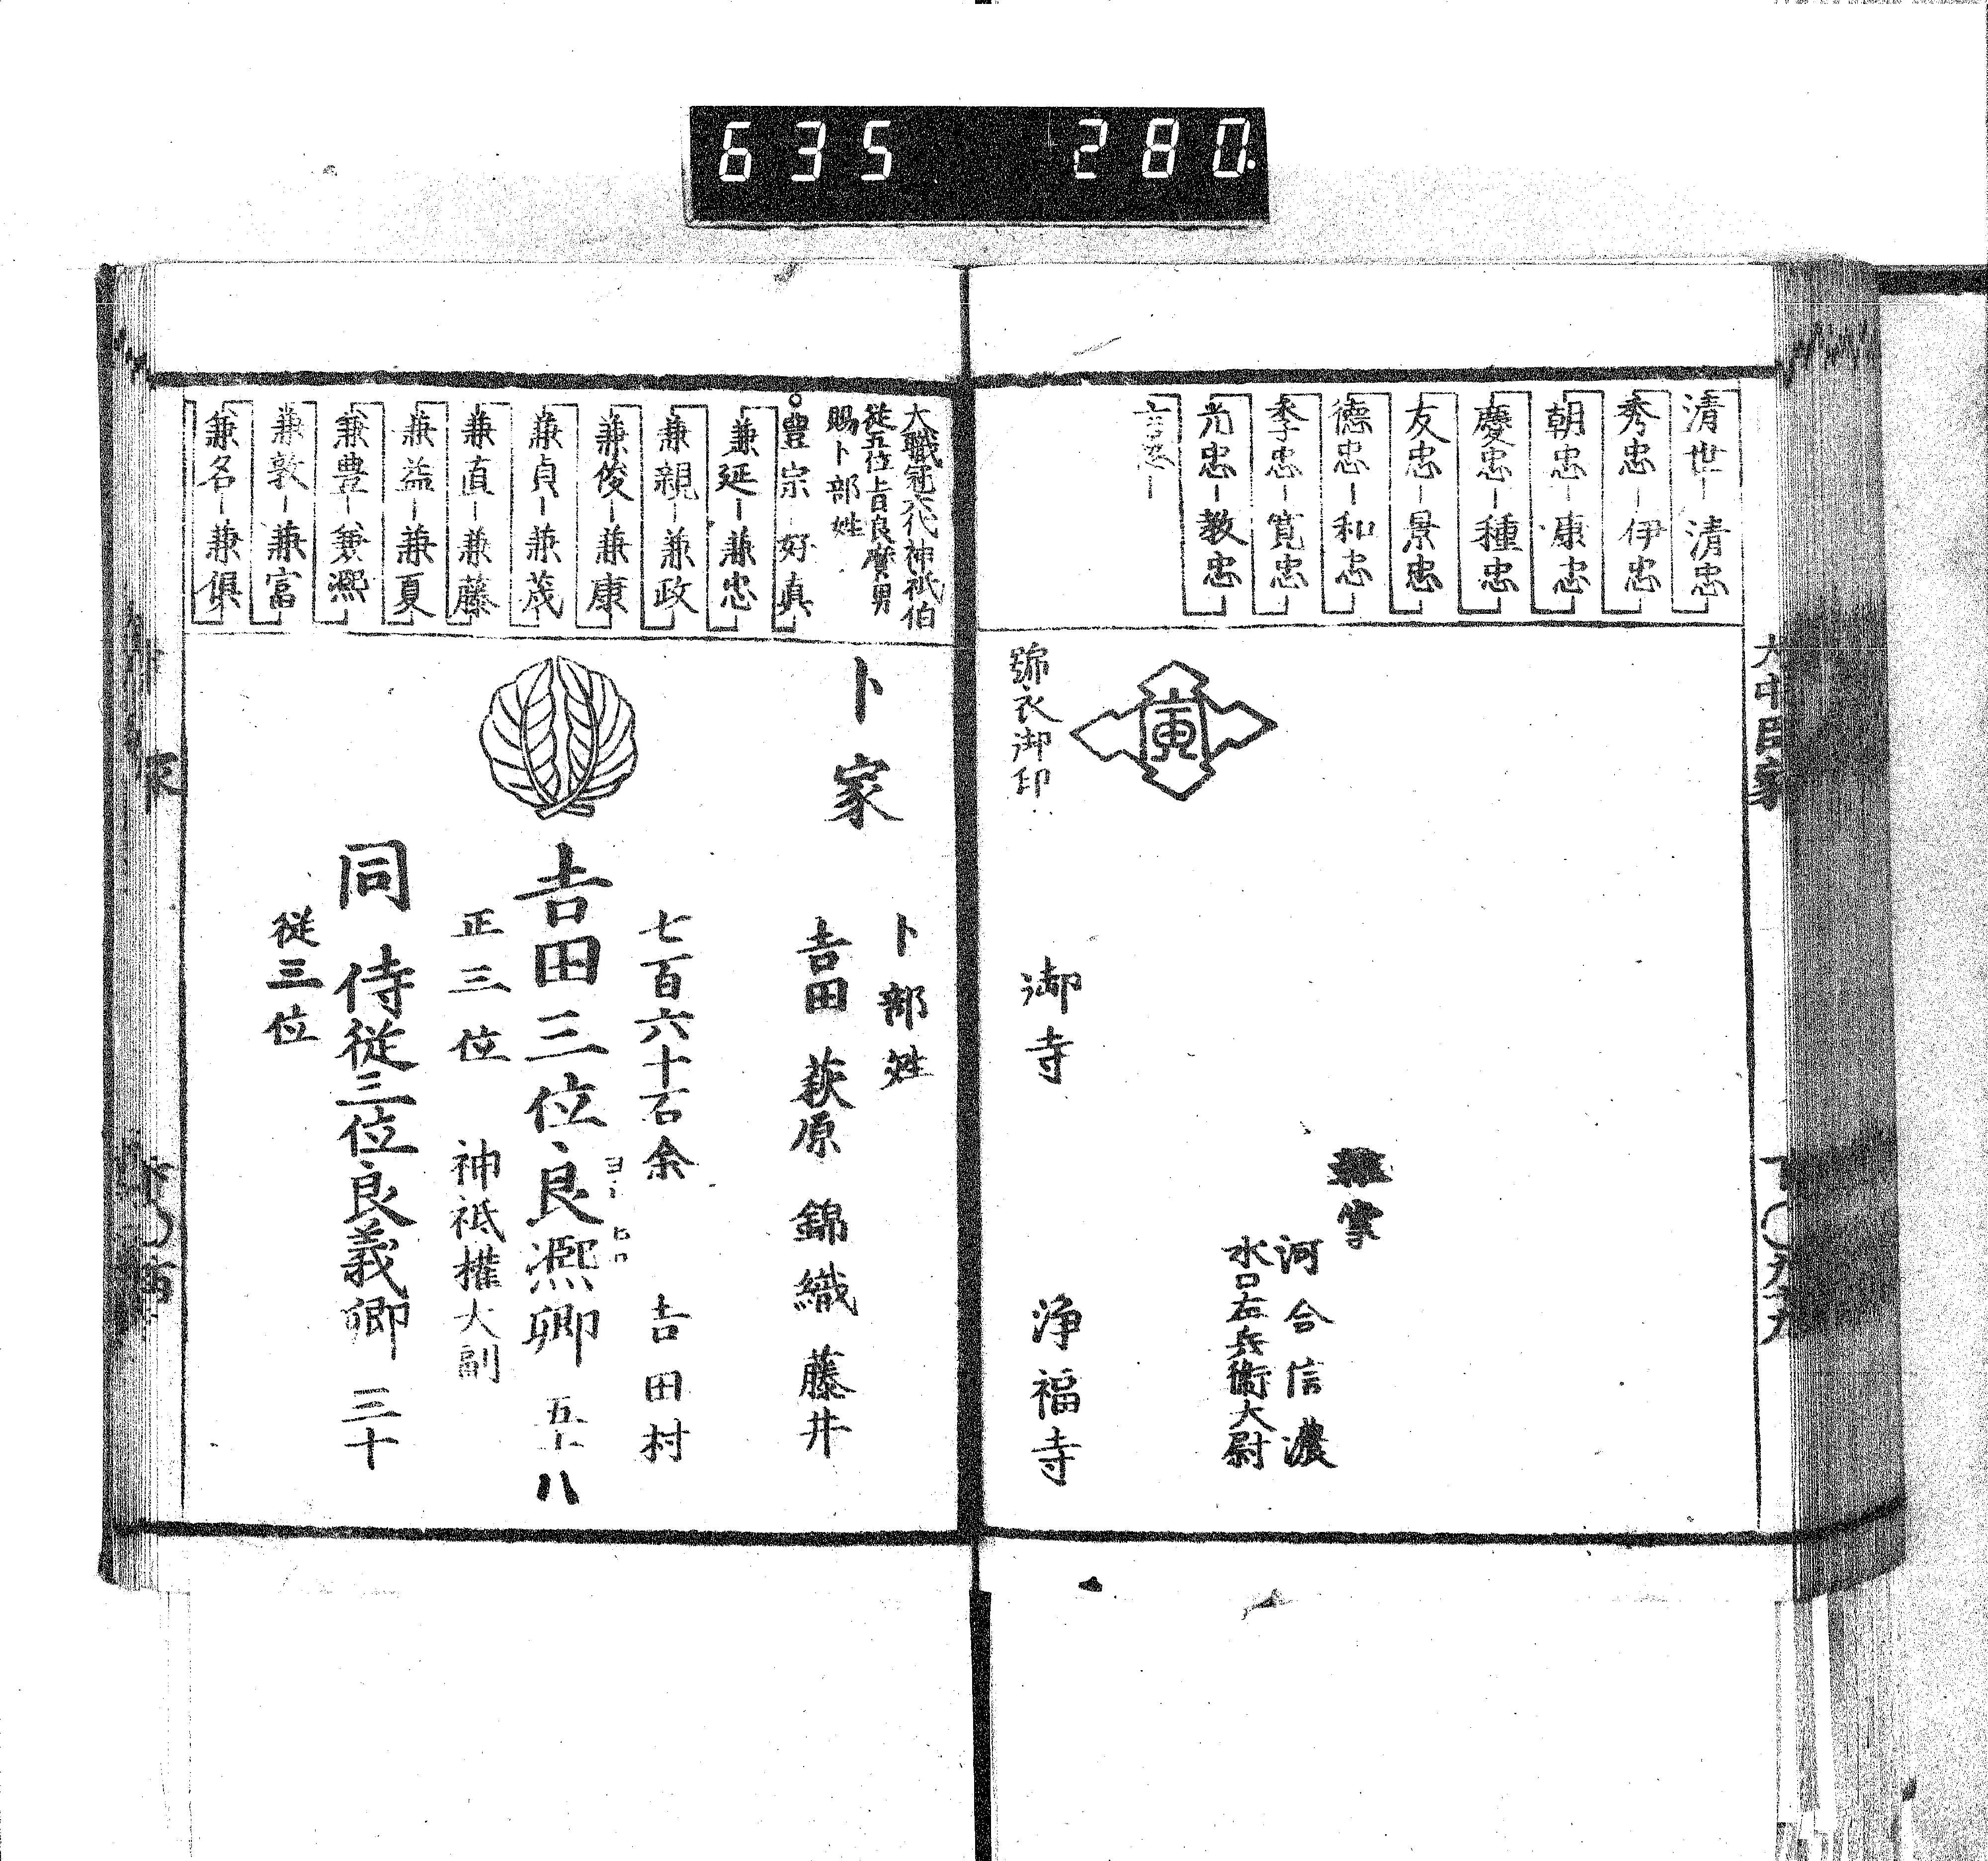 635 280.
大中臣家
清世－清忠
秀忠－伊忠
朝忠－康忠
慶忠－種忠
友忠－景忠
德忠－和忠
季忠－寛忠
光忠－教忠
寅
號衣御印
雜掌
河合信濃
水口左兵衛大尉
御寺 浄福寺
大職冠六代神祇伯
從五位上旨良麿男
賜卜部姓
豊宗 好真
兼延－兼忠
兼親－兼政
兼俊－兼康
兼貞－兼茂
兼直－兼藤
兼益－兼夏
兼豊－兼凞
兼敦－兼富
兼名－兼倶
卜家
卜部姓
吉田 萩原 錦織 藤井
七百六十石余 吉田村
吉田三位良凞卿 五十八
正三位 神祇權大副
同 侍從三位良義卿 三十
從三位